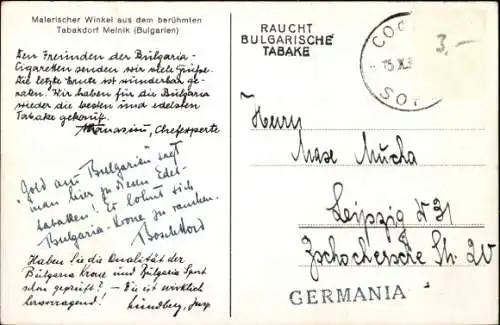 Malerischer Winkel aus dem berühmten
Tabakdorf Melnik (Bulgarien)
Den Freunden der Bulgaria-
Cigaretten senden wir viele Grüße.
Die letzte Ernte ist wunderbar ge-
raten. Wir haben für die Bulgaria
wieder die besten und edelsten
Tabake gekauft.
Athanasiou, Chefexperte
"Gold aus Bulgarien" sagt
man hier zu diesen Edel-
tabaken! Es lohnt sich
Bulgaria-Krone zu rauchen.
Haben Sie die Qualität der
Bulgaria Krone und Bulgaria Sport
schon geprüft? – Die ist wirklich
hervorragend!
RAUCHT
BULGARISCHE
TABAKE
3.-
SO
Herrn
Max Mucha
Leipzig W 31
Zschochersche Str. 20
GERMANIA